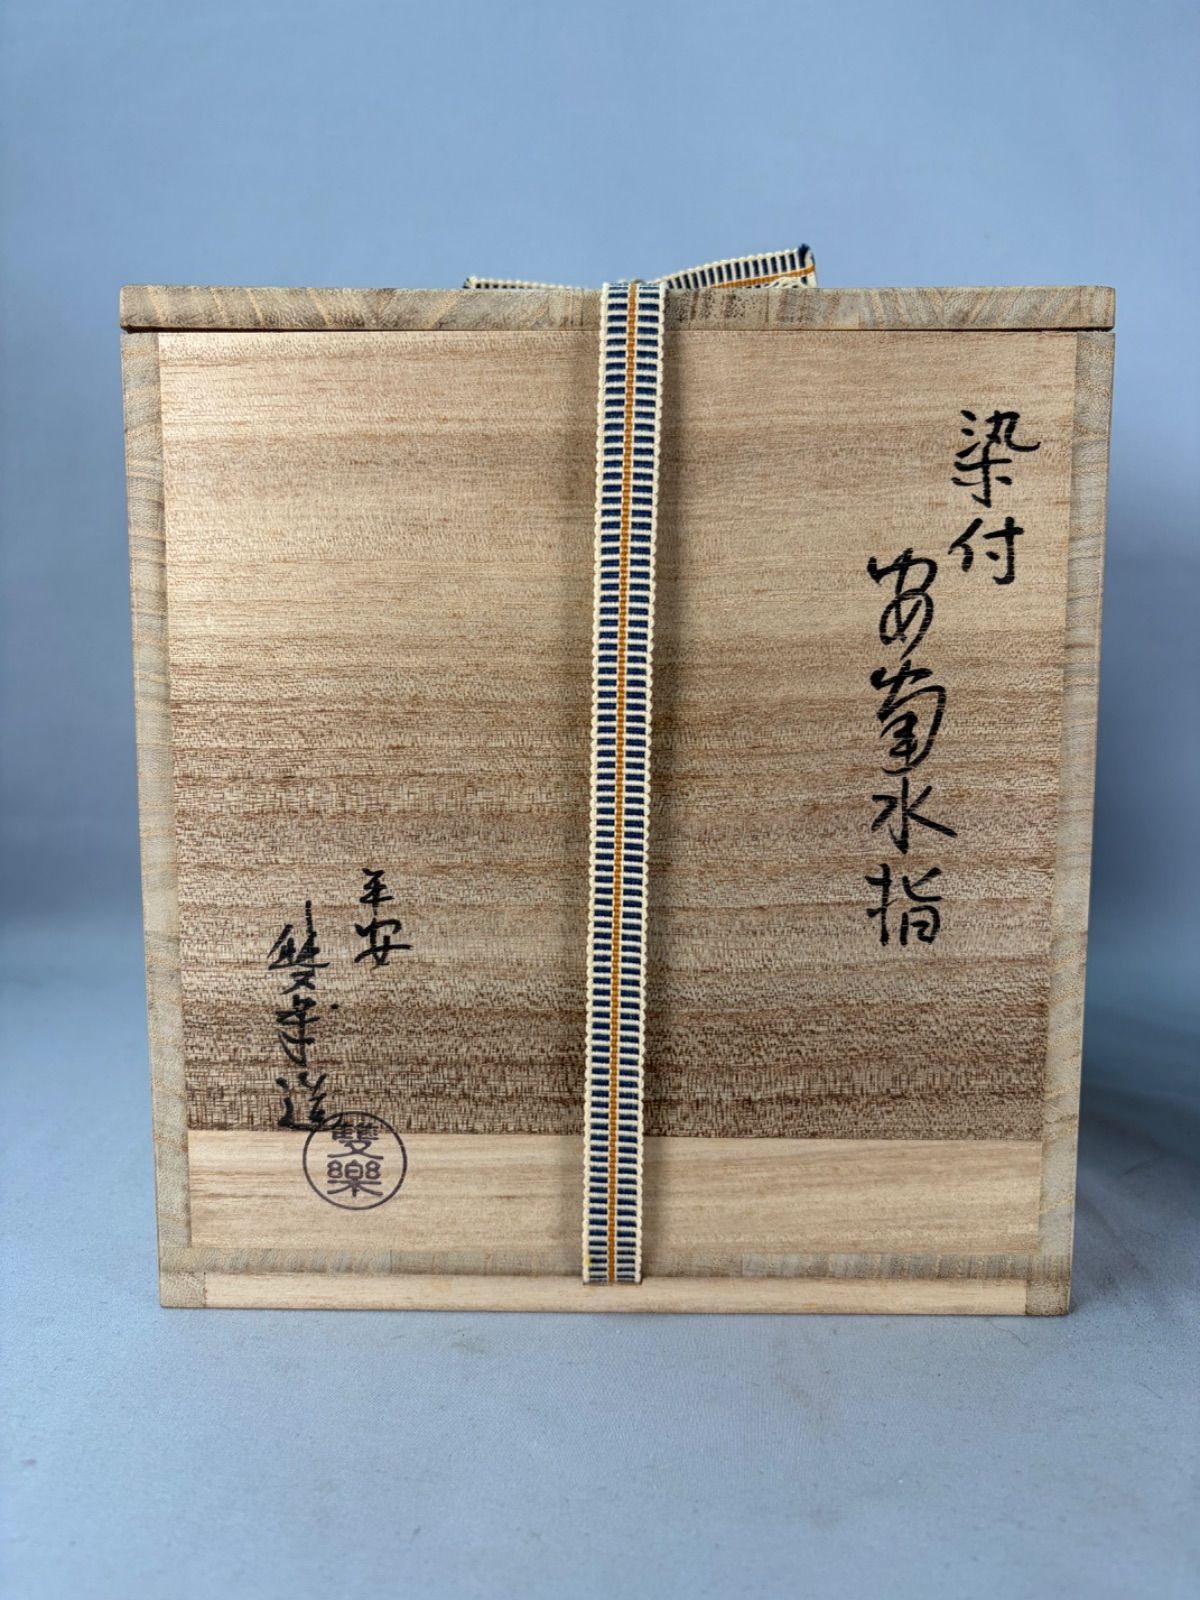 染付
葡萄水指
平安
雙楽造
雙樂